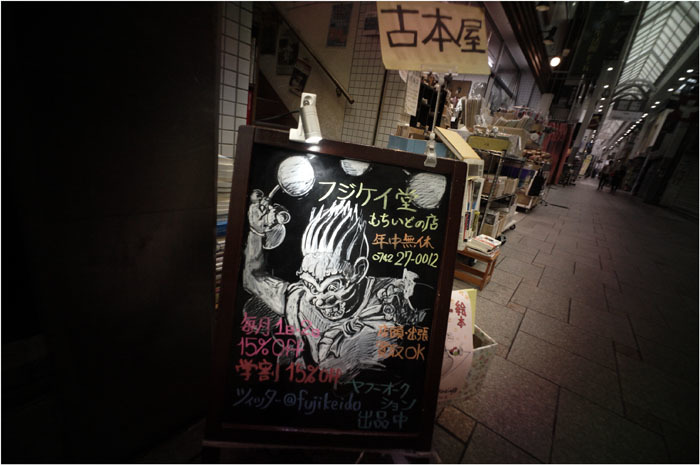 古本屋
フジケイ堂
もちいどの店
年中無休
0742 27-0012
毎月
15%OFF
店頭・出張
買取OK
学割 15%Off
ツイッター@fujikeido
ヤフーオーク
ション
出品中
絵本